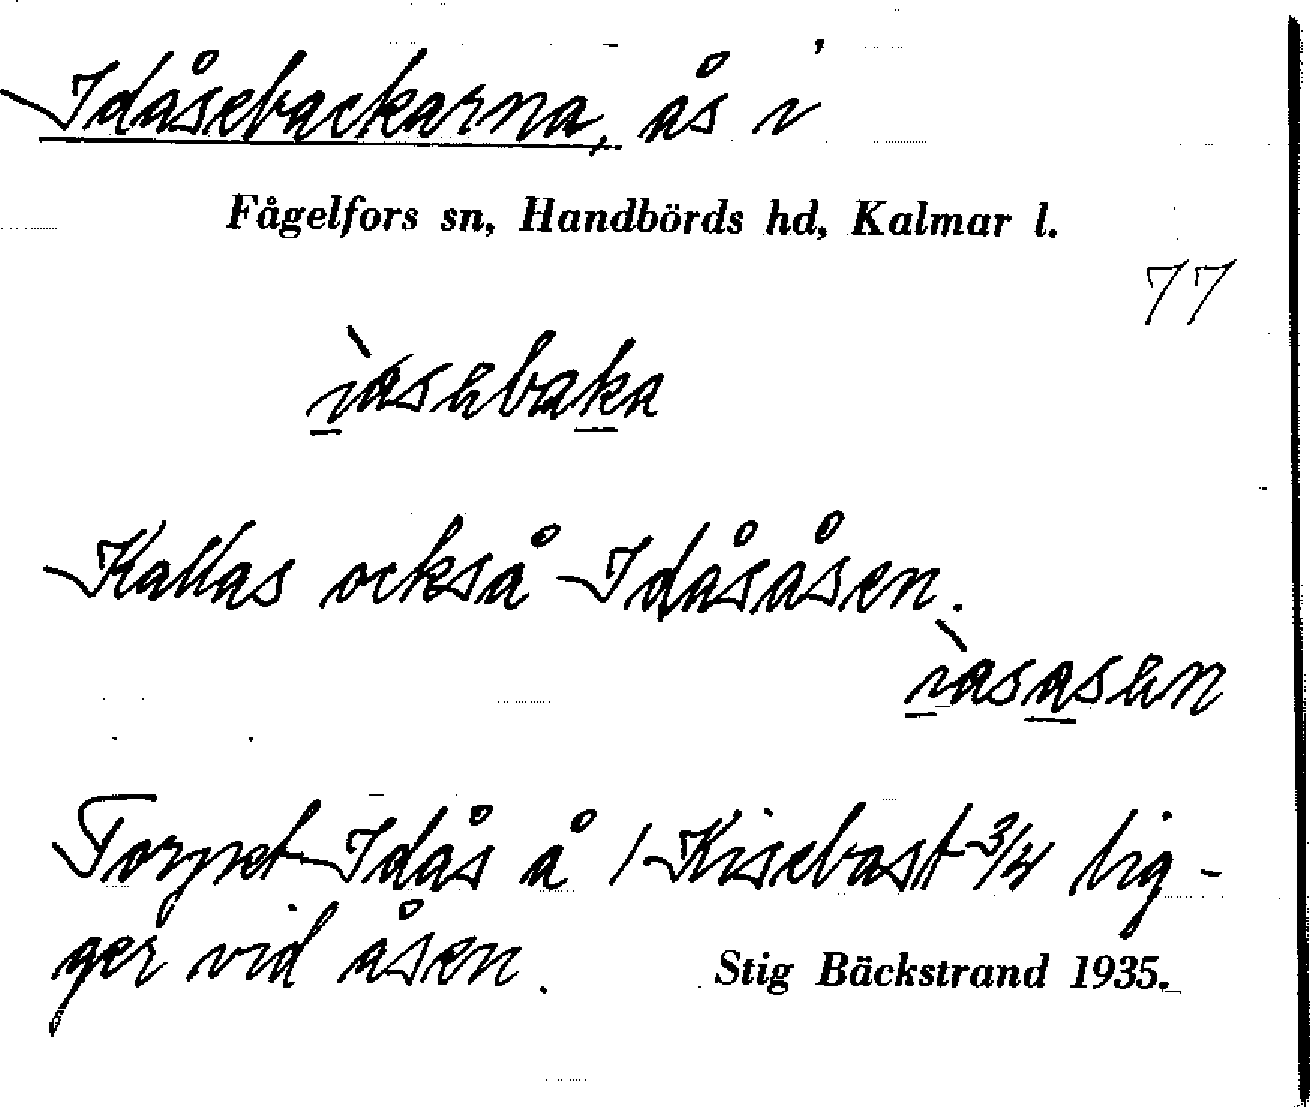 Idåsebackarna, ås i
Fågelfors sn, Handbörds hd, Kalmar l.
77
ìasebaka
Kallas också Idåsåsen.
ìasasen
Torpet Idås å 1 Kisebast 3/4 lig-
ger vid åsen.
Stig Bäckstrand 1935.